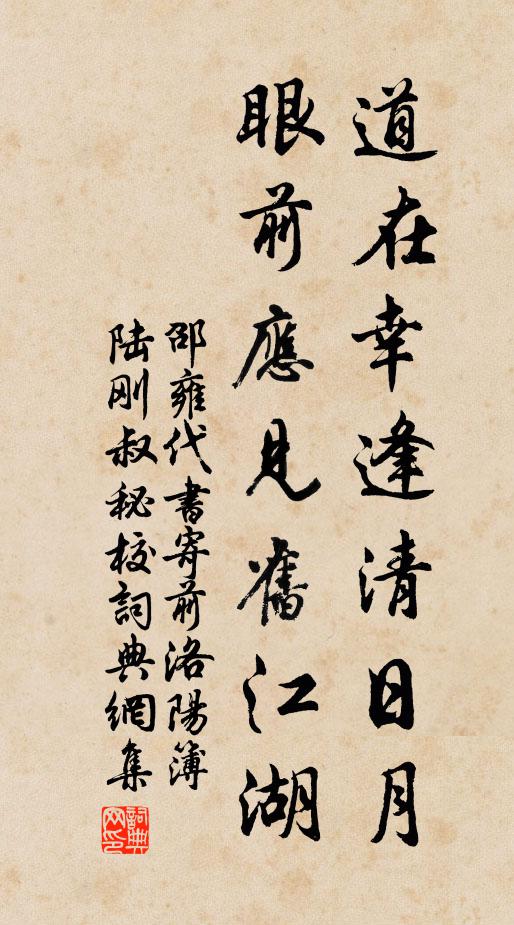 道在幸逢清日月
眼前應見舊江湖
邵雍代書寄前洛陽簿
陆刚叔秘校詞典網集
詞典网印